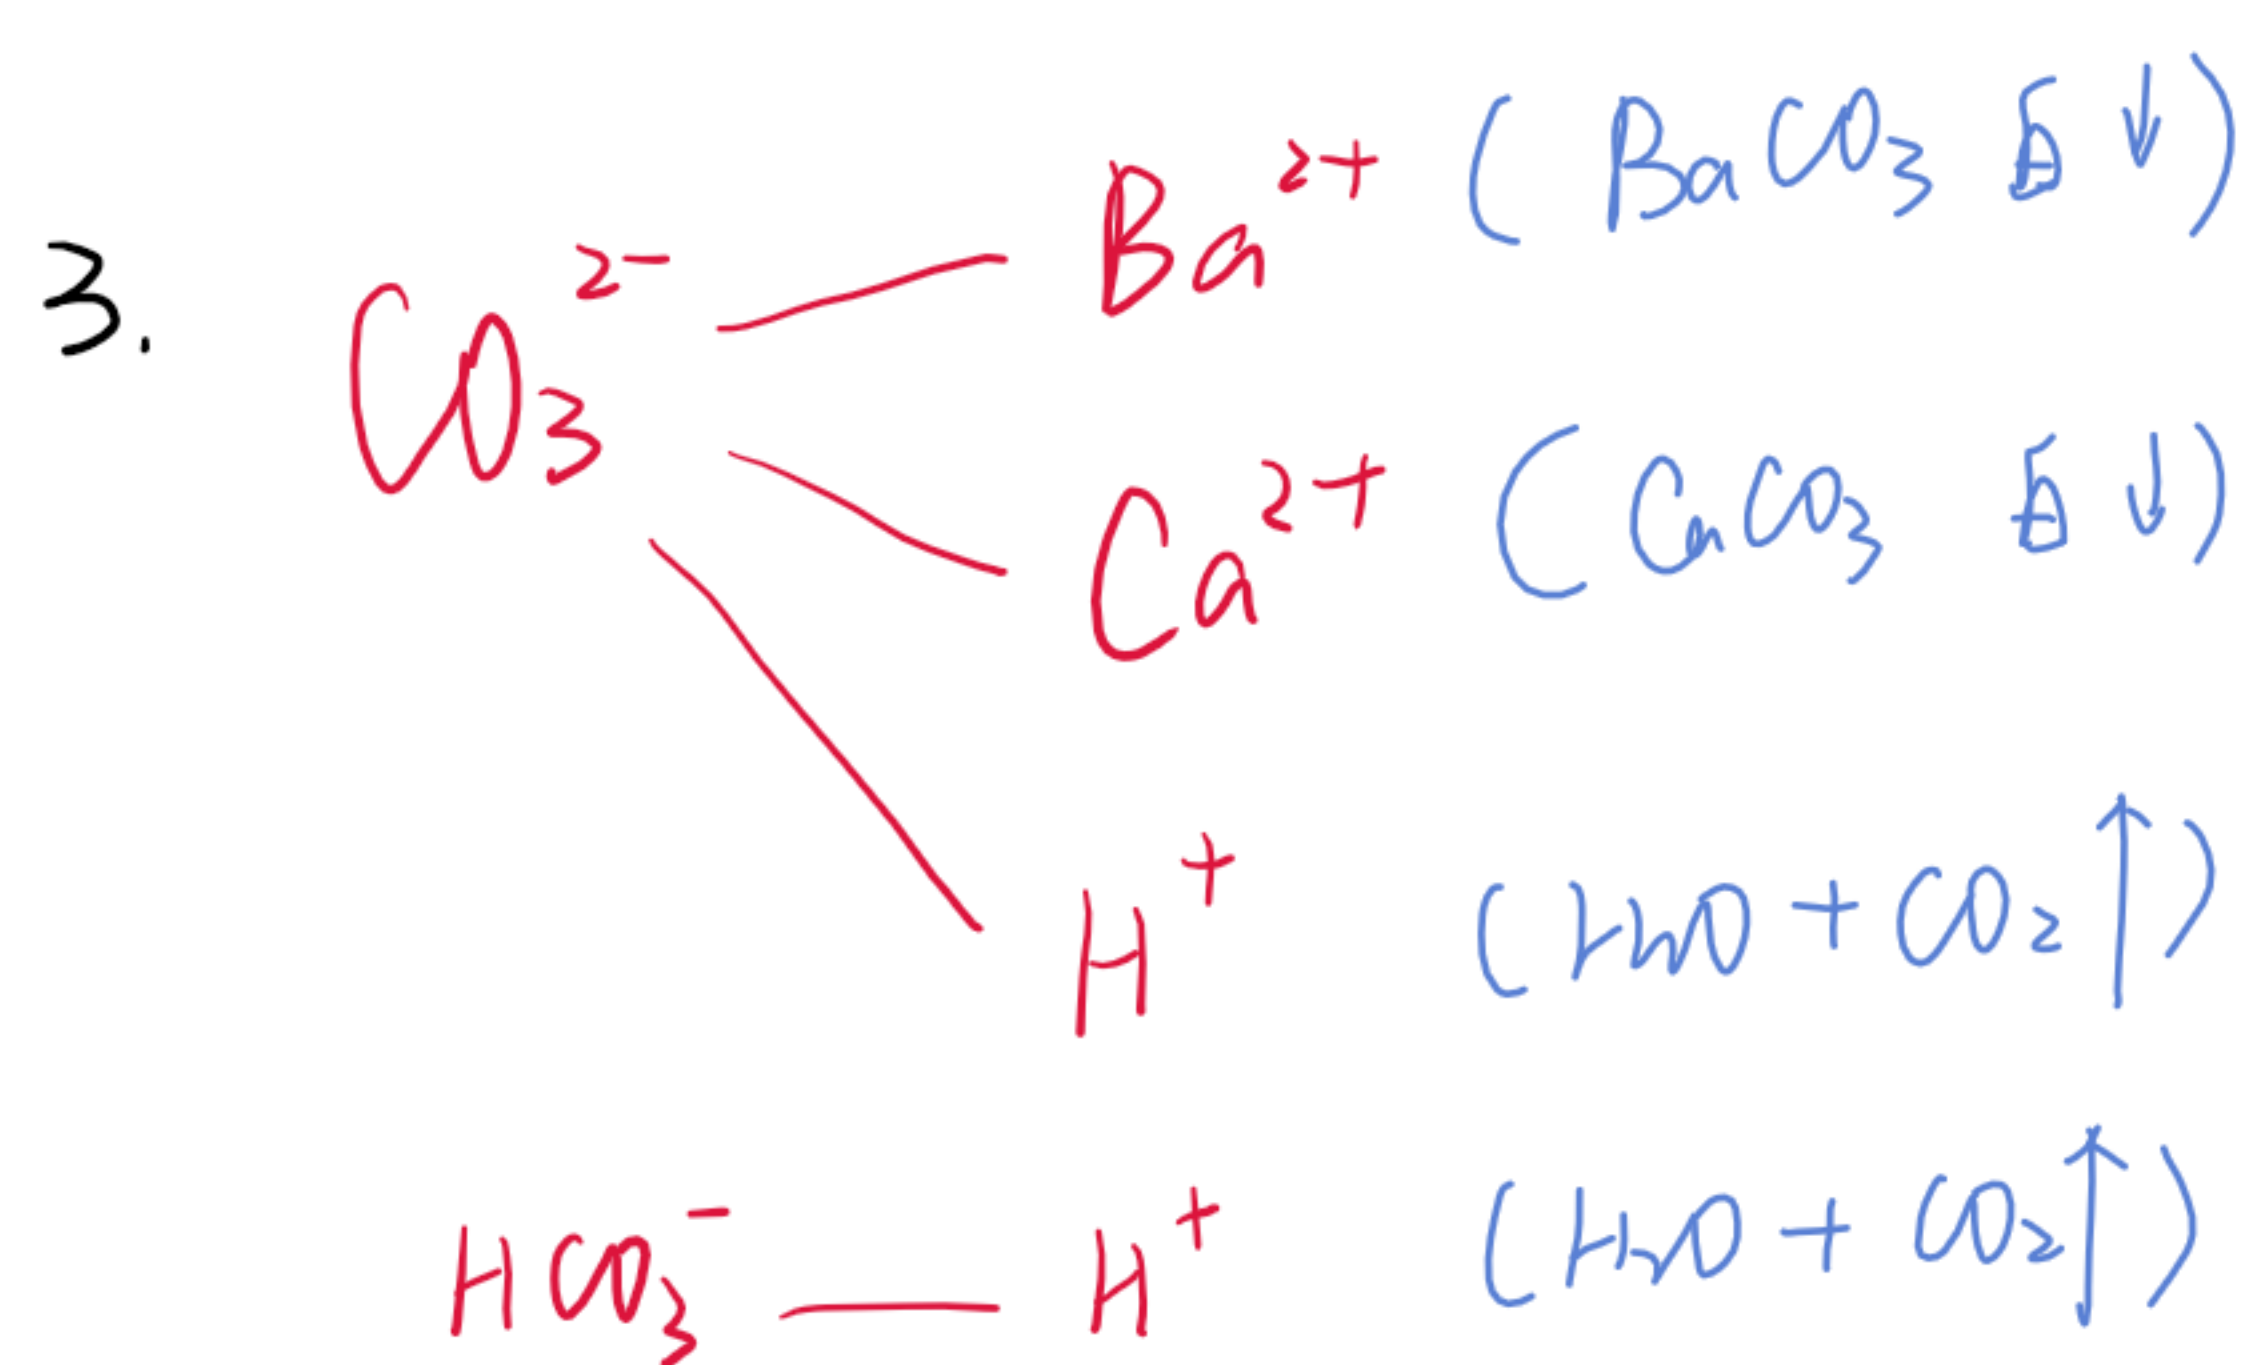 3. CO₃²⁻ — Ba²⁺ (BaCO₃ 白↓)
— Ca²⁺ (CaCO₃ 白↓)
— H⁺ (H₂O + CO₂↑)
HCO₃⁻ — H⁺ (H₂O + CO₂↑)